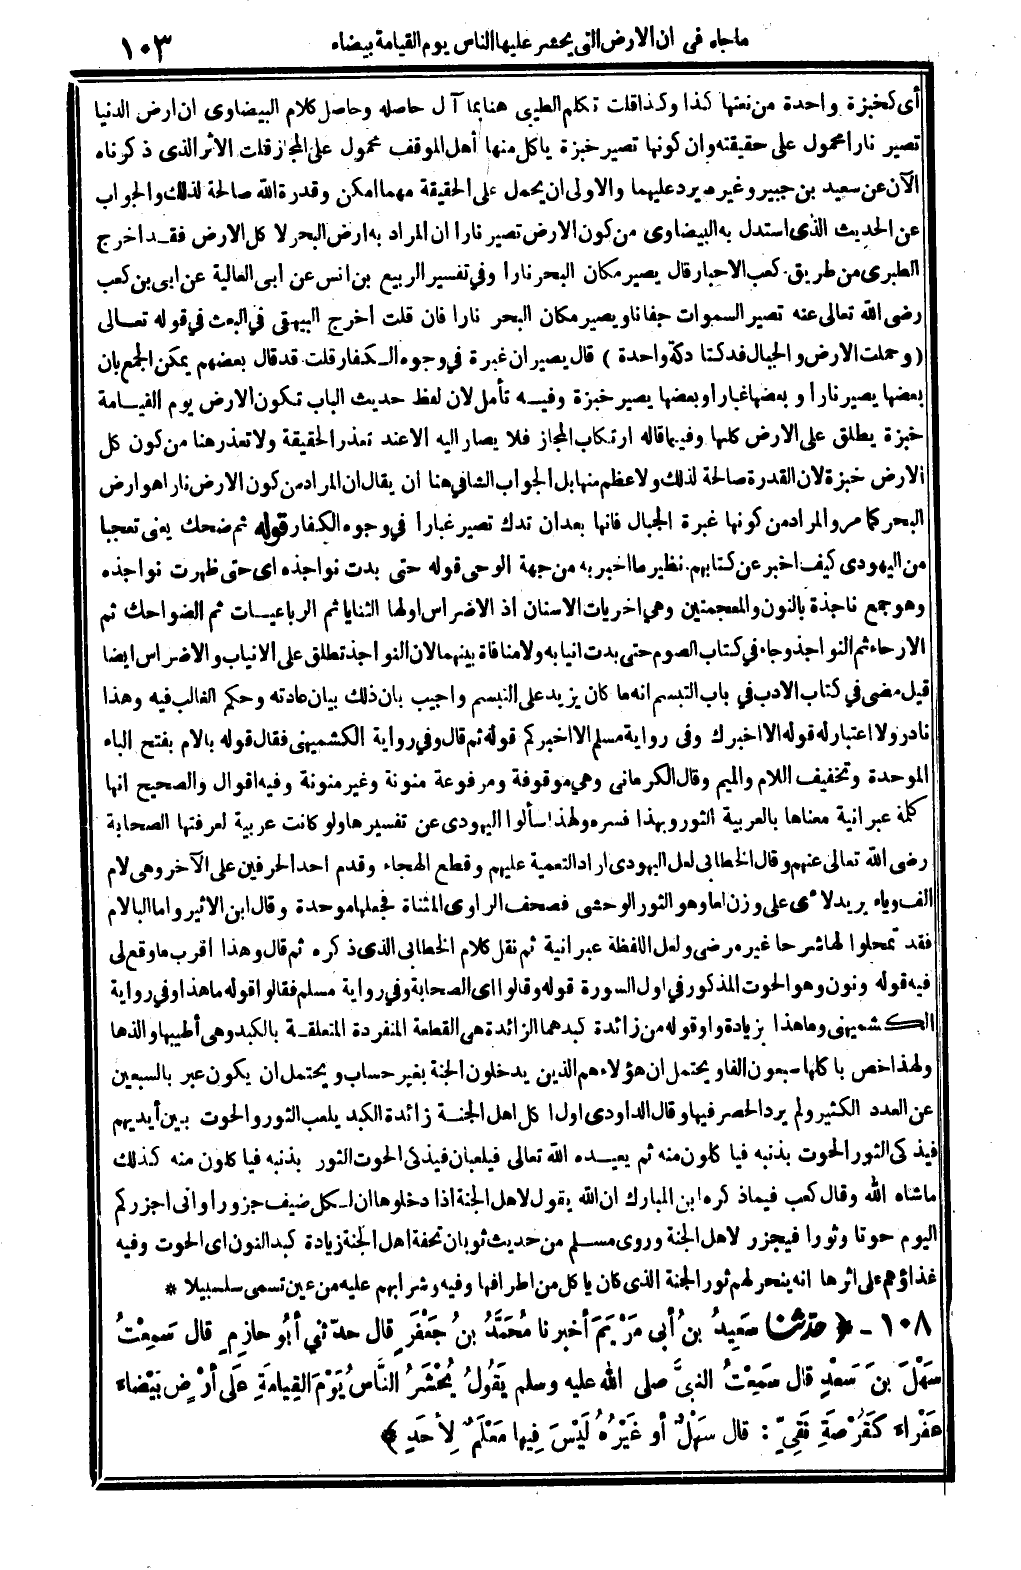 ماجاء في ان الارض التي يحشر عليها الناس يوم القيامة بيضاء
١٠٣
أى كخبزة واحدة من نعتها كذا وكذا قلت تكلم الطيبي هنا بما آل حاصله وحاصل كلام البيضاوى ان ارض الدنيا
تصير نارا محمول على حقيقته وان كونها تصير خبزة يأكل منها أهل الموقف محمول على المجاز قلت الاثر الذى ذكرناه
الآن عن سعيد بن جبير وغيره يرد عليهما والاولى ان يحمل على الحقيقة مهما امكن وقدرة الله صالحة لذلك والجواب
عن الحديث الذى استدل به البيضاوى من كون الارض تصير نارا ان المراد به ارض البحر لا كل الارض فقد اخرج
الطبرى من طريق كعب الاحبار قال يصير مكان البحر نارا وفي تفسير الربيع بن انس عن ابى العالية عن ابى بن كعب
رضى الله تعالى عنه تصير السموات جفانا ويصير مكان البحر نارا فان قلت اخرج البيهقى في البعث في قوله تعالى
(وحملت الارض والجبال فدكتا دكة واحدة) قال يصيران غبرة في وجوه الكفار قلت قد قال بعضهم يمكن الجمع بان
بعضها يصير نارا و بعضها غبارا وبعضها يصير خبزة وفيه تأمل لان لفظ حديث الباب تكون الارض يوم القيامة
خبزة يطلق على الارض كلها وفيما قاله ارتكاب المجاز فلا يصار اليه الا عند تعذر الحقيقة ولا تعذر هنا من كون كل
الارض خبزة لان القدرة صالحة لذلك ولاعظم منها بل الجواب الشافي هنا ان يقال ان المراد من كون الارض نارا هو ارض
البحر كما مر والمراد من كونها غبرة الجبال فانها بعد ان تدك تصير غبارا في وجوه الكفار قوله ثم ضحك يعنى تعجبا
من اليهودى كيف اخبر عن كتابهم نظير ما اخبر به من جهة الوحى قوله حتى بدت نواجذه اى حتى ظهرت نواجذه
وهو جمع ناجذة بالنون والمعجمتين وهى اخريات الاسنان اذ الاضراس اولها الثنايا ثم الرباعيات ثم الضواحك ثم
الارحاء ثم النواجذ وجاء في كتاب الصوم حتى بدت انيابه ولا منافاة بينهما لان النواجذ تطلق على الانياب والاضراس ايضا
قيل مضى في كتاب الادب في باب التبسم انه ما كان يزيد على التبسم واجيب بان ذلك بيان عادته وحكم الغالب فيه وهذا
نادر ولا اعتبار له قوله الا اخبرك وفى رواية مسلم الا اخبركم قوله ثم قال وفي رواية الكشميهنى فقال قوله بالام بفتح الباء
الموحدة وتخفيف اللام والميم وقال الكرمانى وهى موقوفة ومرفوعة منونة وغير منونة وفيه اقوال والصحيح انها
كلمة عبرانية معناها بالعربية الثور وبهذا فسره ولهذا سألوا اليهودى عن تفسيرها ولو كانت عربية لعرفتها الصحابة
رضى الله تعالى عنهم وقال الخطابى لعل اليهودى اراد التعمية عليهم وقطع الهجاء وقدم احد الحرفين على الآخر وهى لام
الف وياء يريد لأى على وزن لعا وهو الثور الوحشى فصحف الراوى المثناة فجعلها موحدة وقال ابن الاثير واما البالام
فقد تمحلوا لها شرحا غير مرضى ولعل اللفظة عبرانية ثم نقل كلام الخطابى الذى ذكره ثم قال وهذا اقرب ما وقع لى
فيه قوله ونون وهو الحوت المذكور في اول السورة قوله وقالوا اى الصحابة وفي رواية مسلم فقالوا قوله ما هذا وفي رواية
الكشميهنى وما هذا بزيادة واو قوله من زائدة كبدهما الزائدة هى القطعة المنفردة المتعلقة بالكبد وهى أطيبها والذها
ولهذا خص باكلها سبعون الفا ويحتمل ان هؤلاء هم الذين يدخلون الجنة بغير حساب ويحتمل ان يكون عبر بالسبعين
عن العدد الكثير ولم يرد الحصر فيها وقال الداودى اول اكل اهل الجنة زائدة الكبد يلعب الثور والحوت بين أيديهم
فيذكى الثور الحوت بذنبه فيأكلون منه ثم يعيده الله تعالى فيلعبان فيذكى الحوت الثور بذنبه فيأكلون منه كذلك
ماشاء الله وقال كعب فيما ذكره ابن المبارك ان الله يقول لاهل الجنة اذا دخلوها ان لكل ضيف جزورا وانى اجزركم
اليوم حوتا وثورا فيجزر لاهل الجنة وروى مسلم من حديث ثوبان تحفة اهل الجنة زيادة كبد النون اى الحوت وفيه
غذاؤهم على اثرها انه ينحر لهم ثور الجنة الذى كان يأكل من اطرافها وفيه وشرابهم عليه من عين تسمى سلسبيلا *
١٠٨ ـ ﴿ حَدَّثَنَا سَعِيدُ بنُ أبى مَرْيَمَ أخبرنا مُحَمَّدُ بنُ جَعْفَرٍ قال حدّثني أبُو حازِمٍ قال سَمِعْتُ
سَهْلَ بنَ سَعْدٍ قال سَمِعْتُ النبىَّ صلى الله عليه وسلم يَقُولُ يُحْشَرُ النَّاسُ يَوْمَ القِيامَةِ عَلَى أرْضٍ بَيْضاءَ
عَفْراءَ كَقُرْصَةِ نَقِىٍّ : قال سَهْلٌ أو غَيْرُهُ لَيْسَ فِيها مَعْلَمٌ لِأحَدٍ ﴾